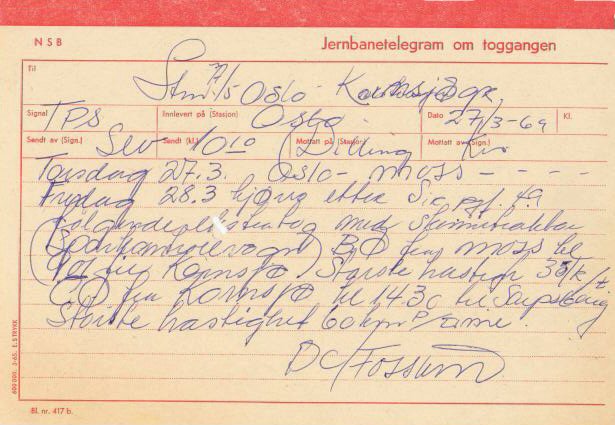 NSB
Jernbanetelegram om toggangen
Til
Stm. 7/5 Oslo - Kornsjø gr.
Signal TPS Innlevert på (Stasjon) Oslo Dato 27/3-69 Kl.
Sendt av (Sign.) Sendt (kl.) 1010 Mottatt på (Stasjon) Dilling Mottatt av (Sign.)
Torsdag 27.3. Oslo - Moss - - - -
Fredag 28.3 kjøres etter
følgende med Skinnetraktor
BØ fra Moss kl
til Kornsjø Største hastigh 30/k/t.
fra Kornsjø kl 1430 til Sarpsborg
Største hastighet 60 km
DC/Fossum
600 000. 3-65. E. STRYK
Bl. nr. 417 b.